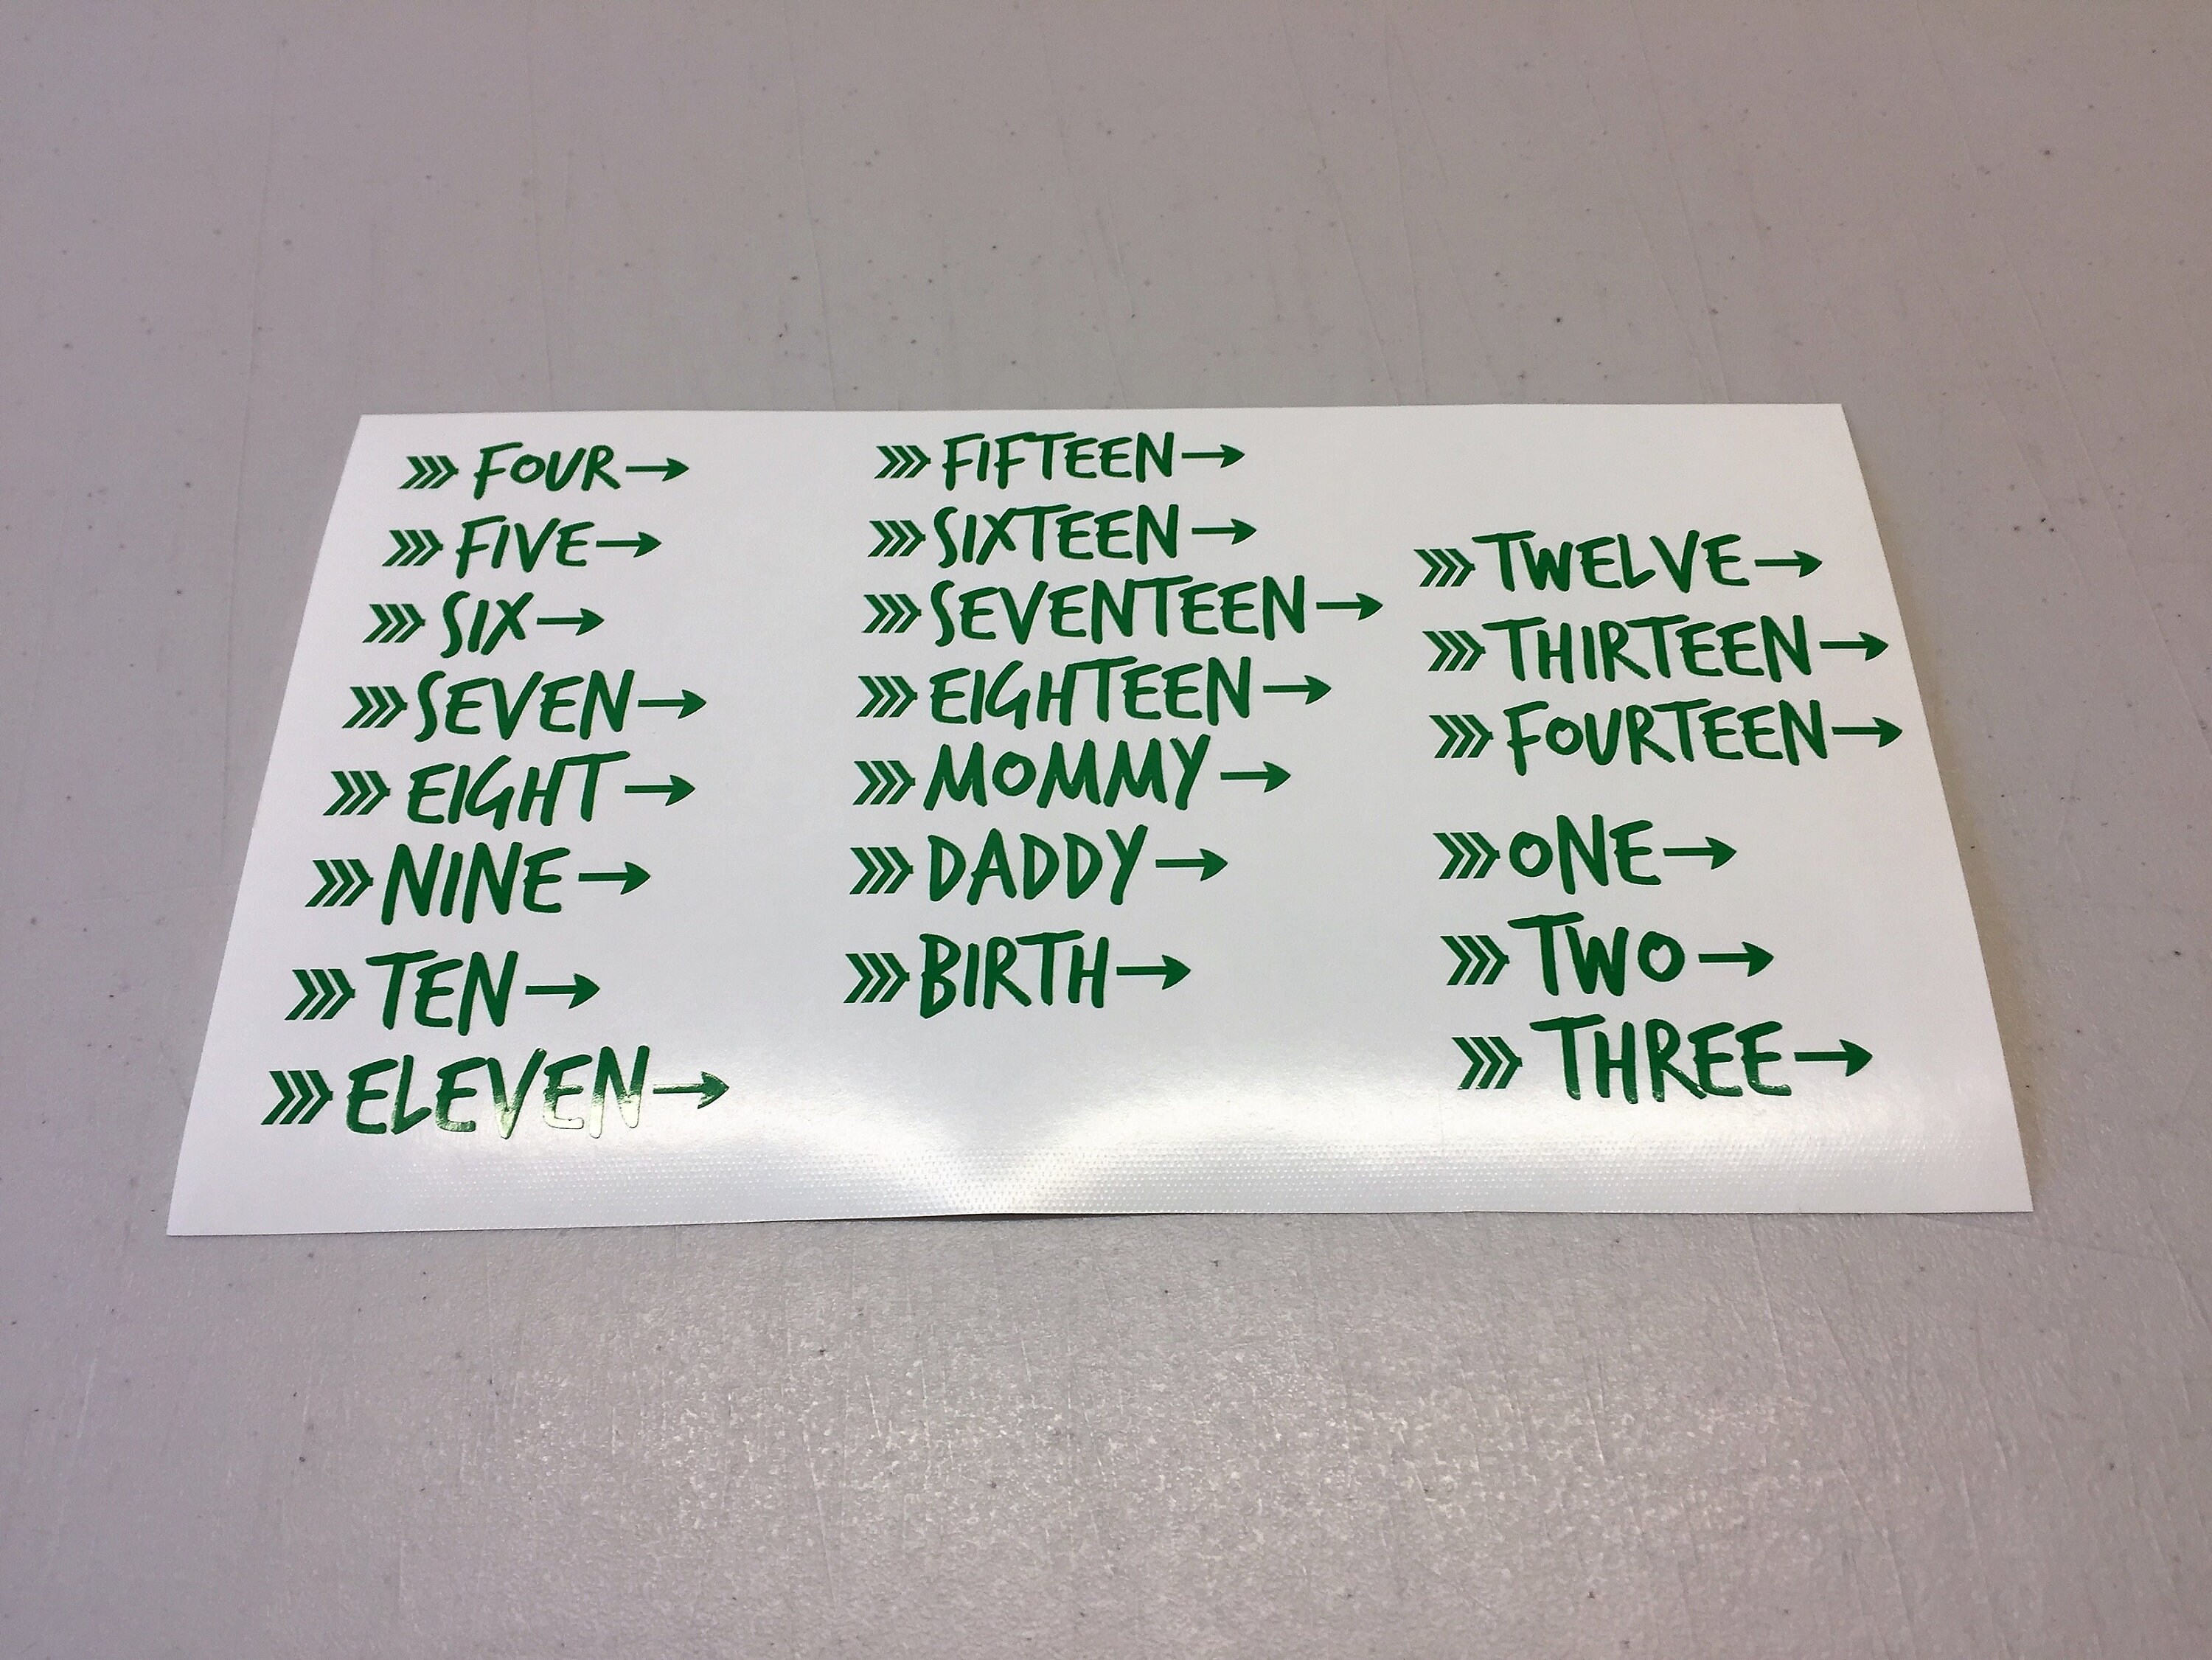 FOUR
FIVE
SIX
SEVEN
EIGHT
NINE
TEN
ELEVEN
FIFTEEN
SIXTEEN
SEVENTEEN
EIGHTEEN
MOMMY
DADDY
BIRTH
TWELVE
THIRTEEN
FOURTEEN
ONE
TWO
THREE